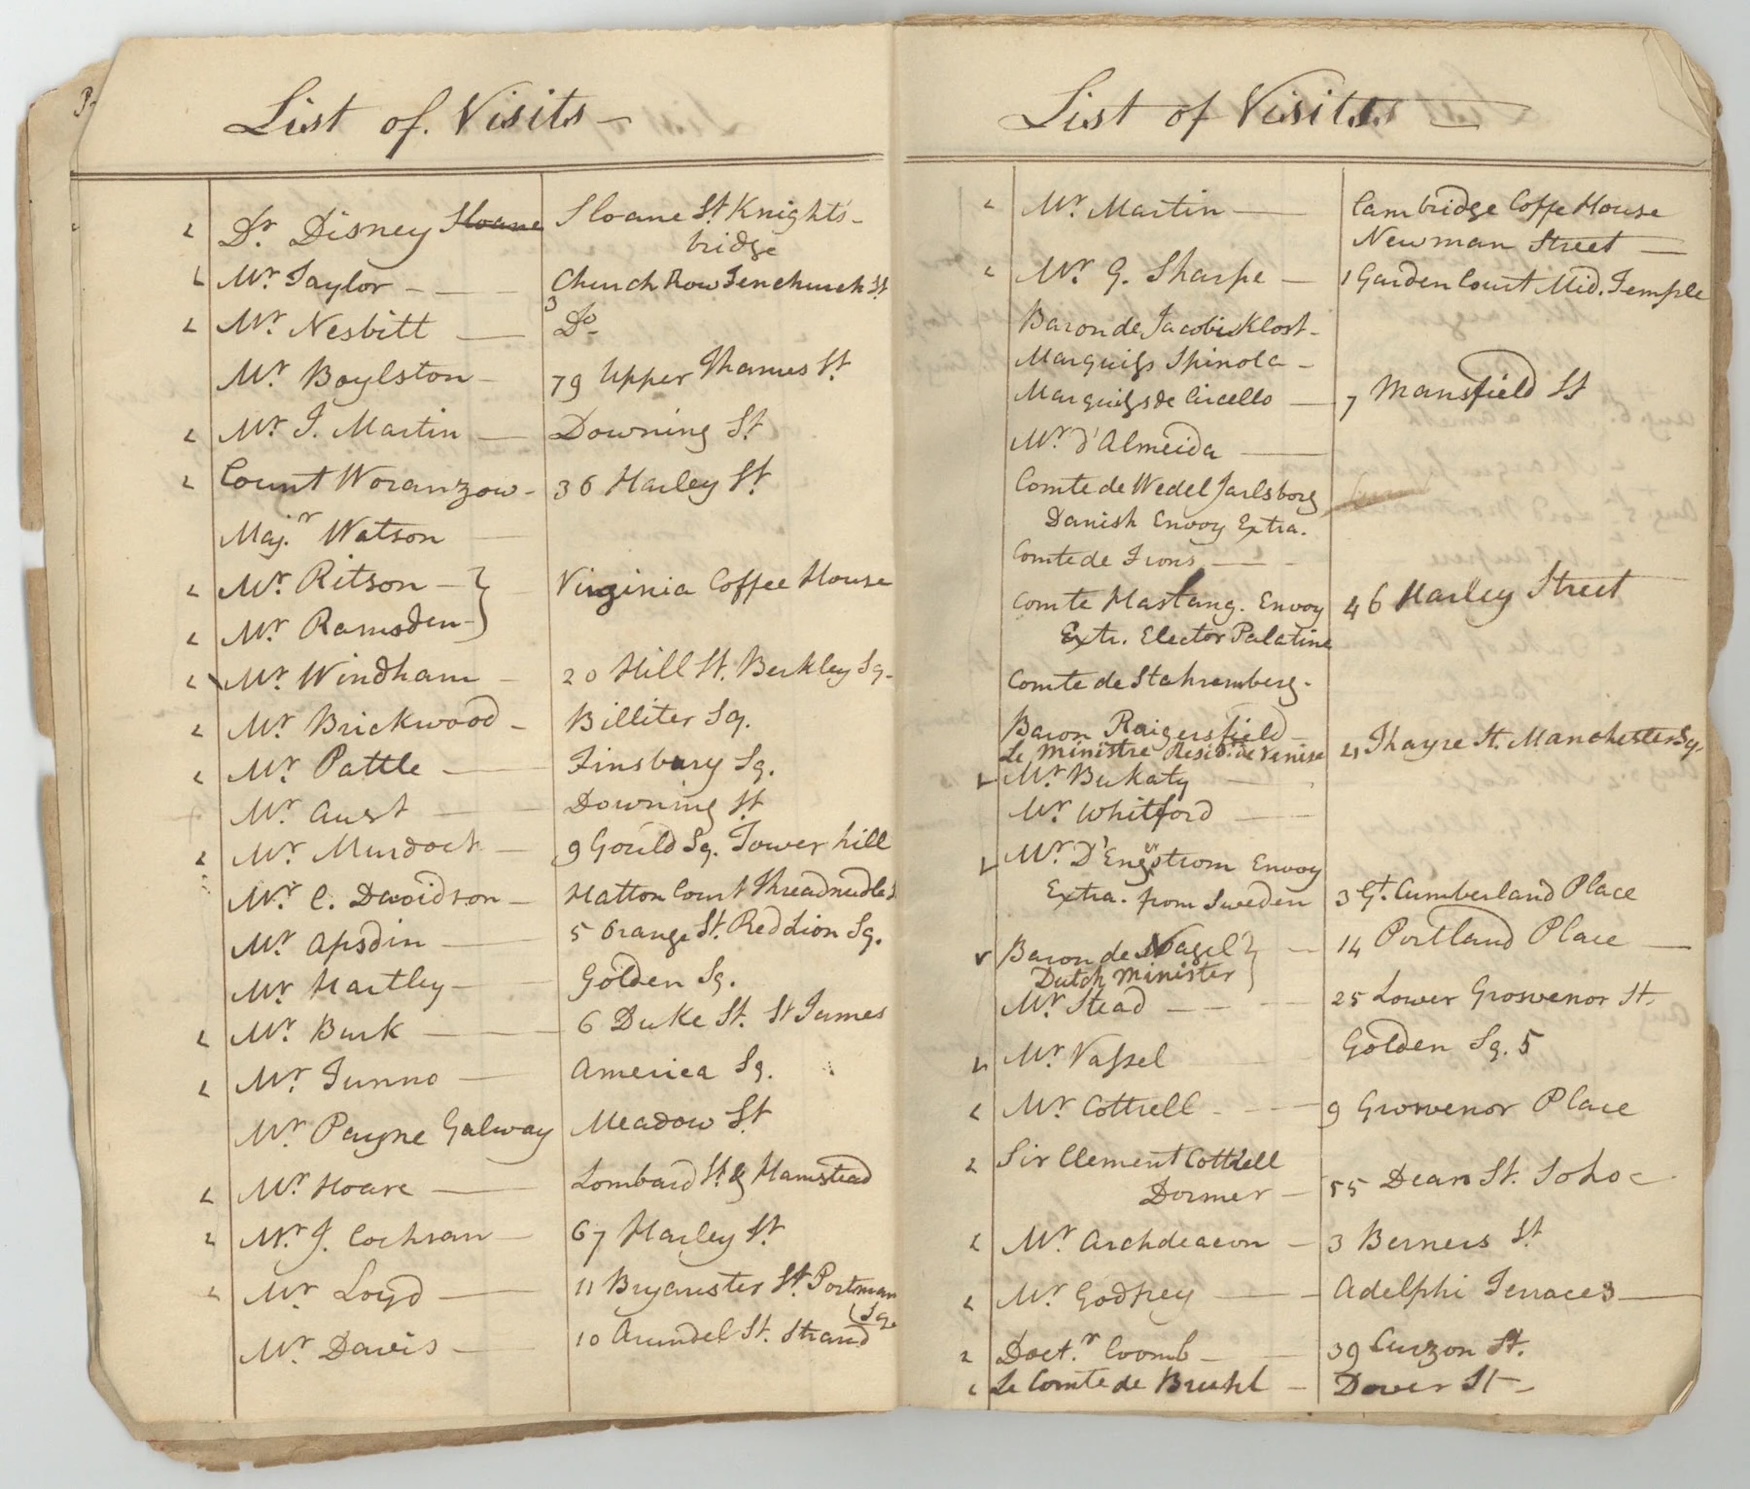 List of Visits
Dr. Disney Sloane Sloane St. Knights-
bridge
Mr. Taylor Church Row Fenchurch St
Mr. Nesbitt Do
Mr. Boylston 79 Upper Thames St.
Mr. J. Martin Downing St.
Count Woranzow 36 Harley St.
Majr. Watson
Mr. Ritson Virginia Coffee House
Mr. Ramsden
Mr. Windham 20 Hill St. Berkley Sq.
Mr. Brickwood Billiter Sq.
Mr. Pattle Finsbury Sq.
Mr. Aust Downing St
Mr. Murdoch 9 Gould Sq. Tower hill
Mr. C. Davidson Hatton Court Threadneedle S
Mr. Apsdin 5 Orange St. Red Lion Sq.
Mr. Hartley Golden Sq.
Mr. Burk 6 Duke St. St James
Mr. Tunno America Sq.
Mr. Payne Galway Meadow St
Mr. Hoare Lombard St. & Hamstead
Mr. J. Cochran 67 Harley St.
Mr. Loyd 11 Bryanster St. Portman
Sqe
Mr. Davis 10 Arundel St. Strand
List of Visits
Mr. Martin Cambridge Coffe House
Newman Street
Mr. G. Sharpe 1 Garden Court Mid. Temple
Baron de Jacobi Klost
Marquiss Spinola
Marquiss de Circello 7 Mansfield St
Mr. d'Almeida
Comte de Wedel Jarlsborg
Danish Envoy Extra.
Comte de Frons
Comte Haslang. Envoy 46 Harley Street
Extr. Elector Palatine
Comte de Stahremberg.
Baron Raigersfield
Le Ministre Resid. de Venise 21 Thayre St. Manchester Sq.
Mr. Bukaty
Mr. Whitford
Mr. D'Engstrom Envoy
Extra. from Sweden 3 Gt. Cumberland Place
Baron de Nagel 14 Portland Place
Dutch Minister
Mr. Stead 25 Lower Grosvenor St.
Mr. Vassel Golden Sq. 5
Mr. Cottrell 9 Grosvenor Place
Sir Clement Cottrell
Dormer 55 Dean St. Soho
Mr. Archdeacon 3 Berners St.
Mr. Godfrey Adelphi Terrace 3
Doctr. Coomb 39 Curzon St.
Le Comte de Bruhl Dover St